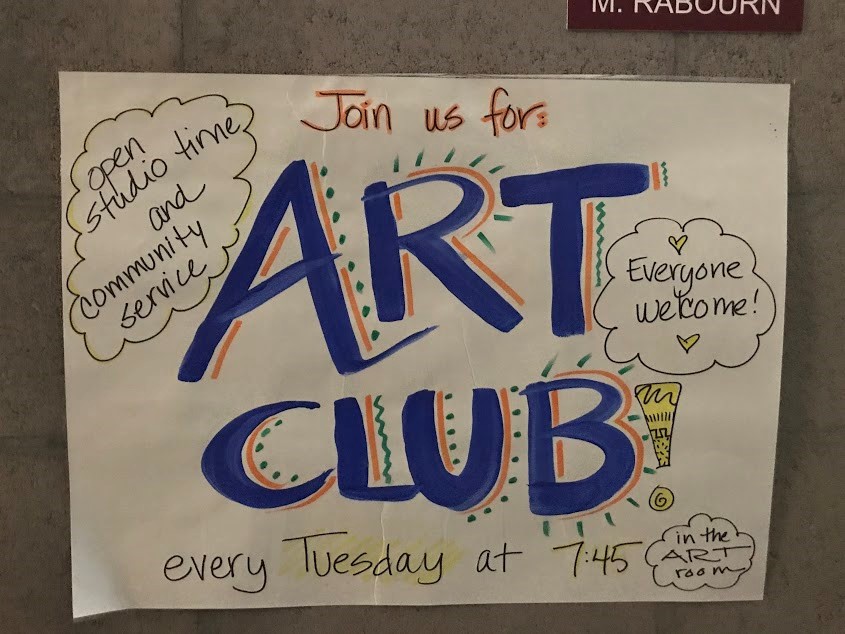 M. RABOURN
Join us for:
open
studio time
and
community
service
ART
CLUB!
Everyone
welcome!
every Tuesday at 7:45
in the
ART
room